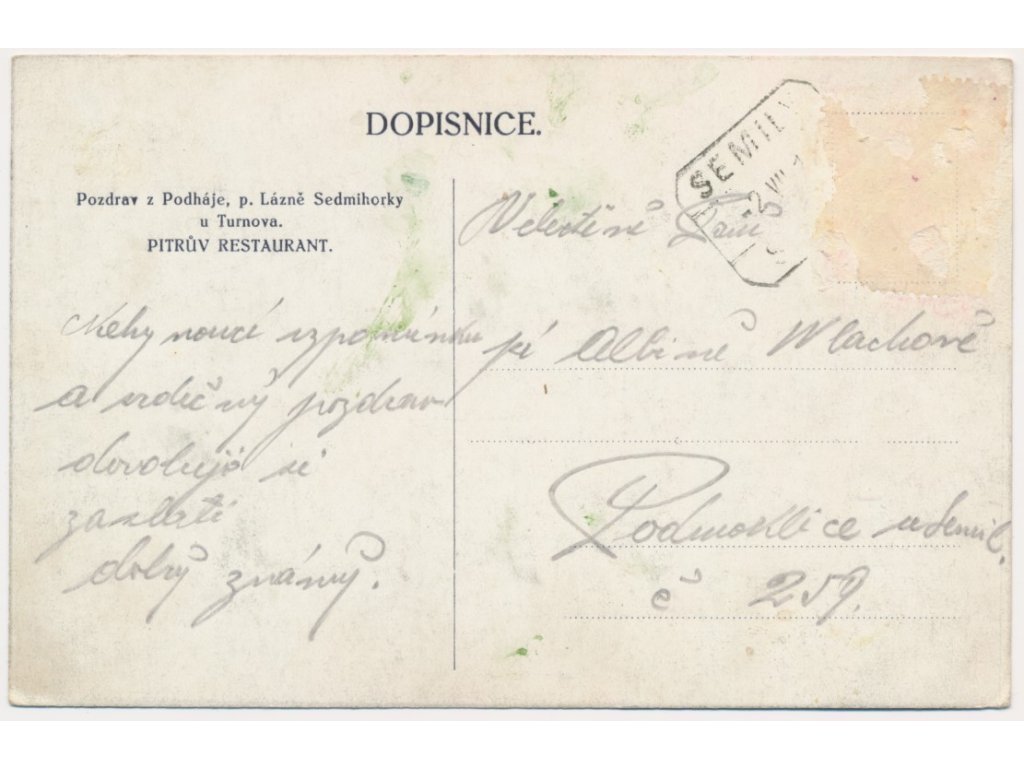 DOPISNICE.
SEMILY
VII
Pozdrav z Podháje, p. Lázně Sedmihorky
u Turnova.
PITRŮV RESTAURANT.
Nehynoucí vzpomínku
a srdečný pozdrav
dovoluje si
zaslati
dobrý známý.
Velectěné
pí Albině Wlachově
Podmoklice u Semil.
č 259.